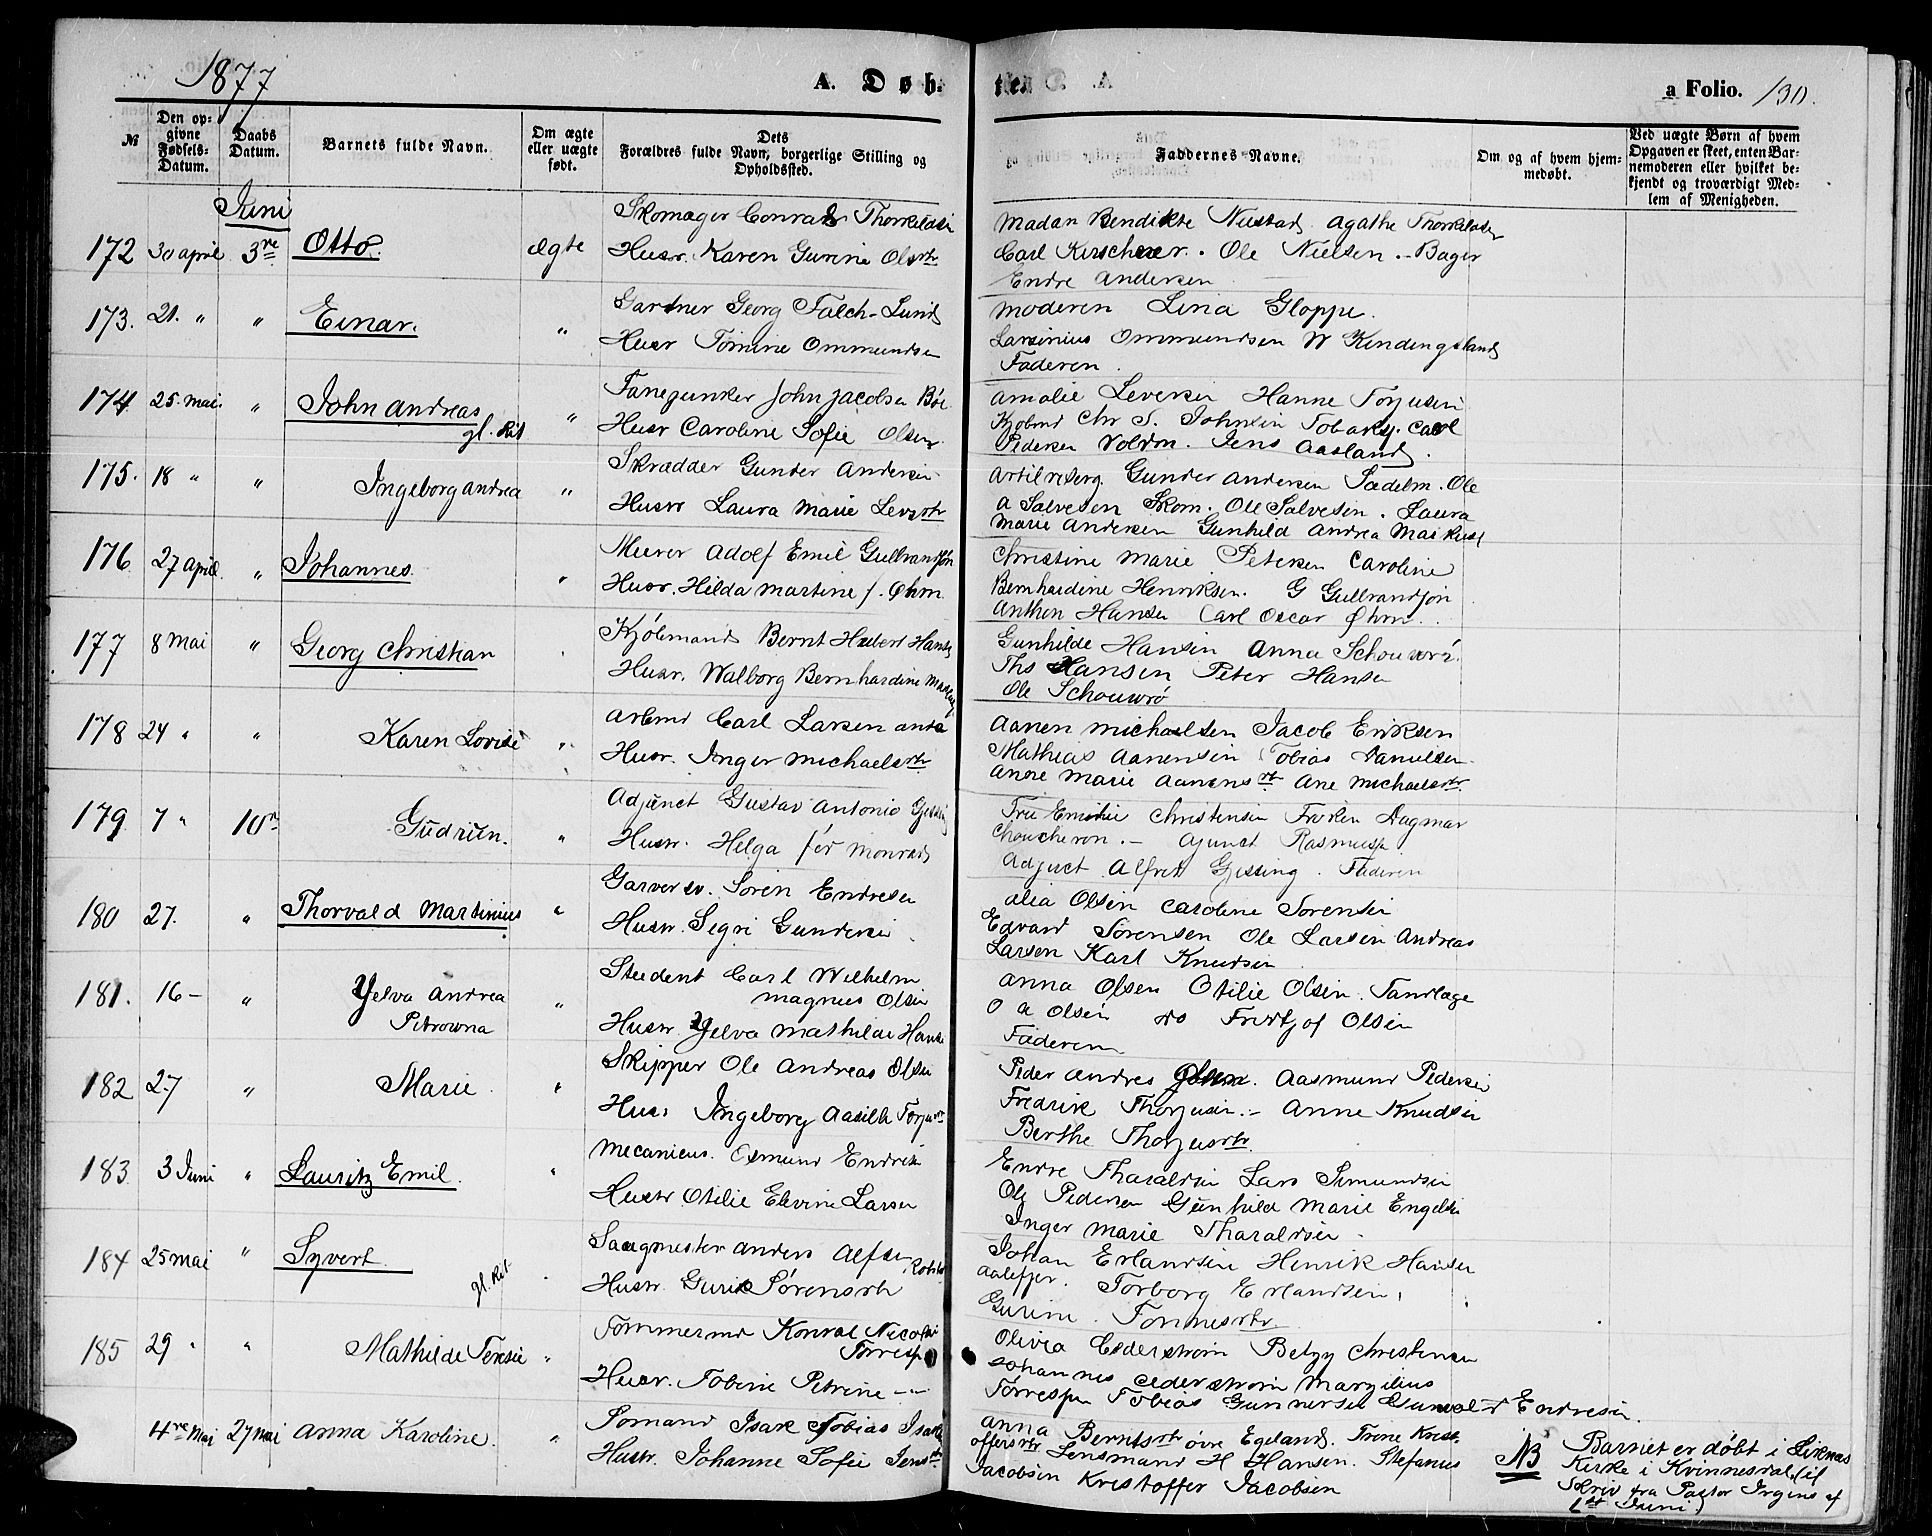 1877
A. Døb-
te.
a Folio. 130.
№
Den op-
givne
Fødsels-
Datum.
Daabs
Datum.
Barnets fulde Navn.
Om ægte
eller uægte
født.
Dets
Forældres fulde Navn, borgerlige Stilling og
Opholdssted.
Faddernes Navne.
Om og af hvem hjem-
medøbt.
Ved uægte Børn af hvem
Opgaven er skeet, enten Bar-
nemoderen eller hvilket be-
kjendt og troværdigt Med-
lem af Menigheden.
Juni
172 30 april 3re Otto. ægte
Skomager Conrad Thorkildsen
Husr. Karen Gurine Olsdtr
Madan Bendikte Nustad Agathe Thorkildsen
Carl Kirschner. Ole Nielsen. Bager
Endre Andersen
173. 21. " " Einar. "
Gartner Georg Falch-Lund
Husr Tomine Ommundsen
Moderen Lina Gloppe.
Larsinius Ommundsen W Kindingsland
Faderen.
174 25. mai. " John Andreas "
gl. Rit
Fanejunker John Jacobsen Bøe
Husr Caroline Sofie Olsen
Amalie Leversen Hanne Torjusen
Kjøbmd Chr S. Johnsen Carl
Pedersen Voldm. Jens Aasland.
175. 18 " " Ingeborg Andrea "
Skrædder Gunder Andersen
Hustr Laura Marie Levsdtr
Gunder Andersen Sadelm. Ole
A Salvesen Skom. Ole Salvesen. Laura
Marie Andersen Gunhild Andrea
176 27 april " Johannes. "
Murer Adolf Emil Gullrandsøn
Husr. Hilda Martine f. Øhm
Christine Marie Petersen Caroline
Bernhardine Henriksen. G Gullrandsøn
Anthon Hansen Carl Oscar Øhm.
177 8 Mai " Georg Christian
Kjøbmand Bernt Hansen
Husr. Walborg Bernhardine
Gunhilde Hansen Anna Schouwrö.
Ths Hansen Peter Hansen
Ole Schouwrö
178 24 " " Karen Lovise "
Arbmd Carl Larsen
Husr. Inger Michaelsdtr
Aanen Michaelsen Jacob Eriksen
Mathias Aanensen Tobias Danielsen
Anne Marie Aanensdtr Ane Michaelsdtr
179 7 " 10de Gudrun. "
Adjunct Gustav Antonio Gjessing
Hustr. Helga før Monrad
Fru Emilie Christensen Frøken Dagmar
Adjunct Alfred Gjessing. Faderen
180 27. " Thorvald Martinius "
Garversv. Søren Endresen
Hustr. Segri Gundersen
Olsen Caroline Sørensen
Edvard Sørensen Ole Larsen Andreas
Larsen Karl Knudsen
181. 16 – " Yelva Andrea "
Petrowna
Student Carl Wilhelm
Magnus Olsen
Hustr Yelva Mathilde
Anna Olsen Otilie Olsen. Tandlæge
O A Olsen do Fridtjof Olsen
Faderen
182 27 " Marie. "
Skipper Ole Andreas Olsen
Hus. Ingeborg
Peder Andres Aasmund Pedersen
Fredrik Thorjusen. – Anne Knudsen
Berthe Thorjusdtr
183 3 Juni " Lauritz Emil. "
Mecanicus. Osmund Endresen
Hustr Otilie Elevine Larsen
Endre Tharaldsen Lars Simundsen
Ole Pedersen Gunhild Marie
Inger Marie Tharaldsen.
184 25 mai " Syvert.
gl. Rit.
Saugmester Anders Alfsen
Hustr. Gurie Sørensdtr
Johan Erlandsen Henrik Hansen
Torborg Erlandsen,
Gurine Tonnesdtr.
185 29 " " Mathilde Teresie "
Tømmermd Konrad Nicolai
Torresen
Husr. Tobine Petrine – –
Olivia Cederstrøm Betzy Christensen
Johannes Cederstrøm Margilius
Torresen Tobias Gunnersen Gunvald Endresen.
4re Mai 27 Mai Anna Karoline. "
Sømand Isak Tobias
Hustr. Johanne Sofie
Anna Berntsdtr øvre Egeland. Trine Krist-
offersdtr Lensmand H Hansen. Stefanus
Jacobsen Kristoffer Jacobsen
NB Barnet er døbt i Liknes
Kirke i Kvinnesdal (if
Skriv fra Pastor Irgens af
1ste Juni.)